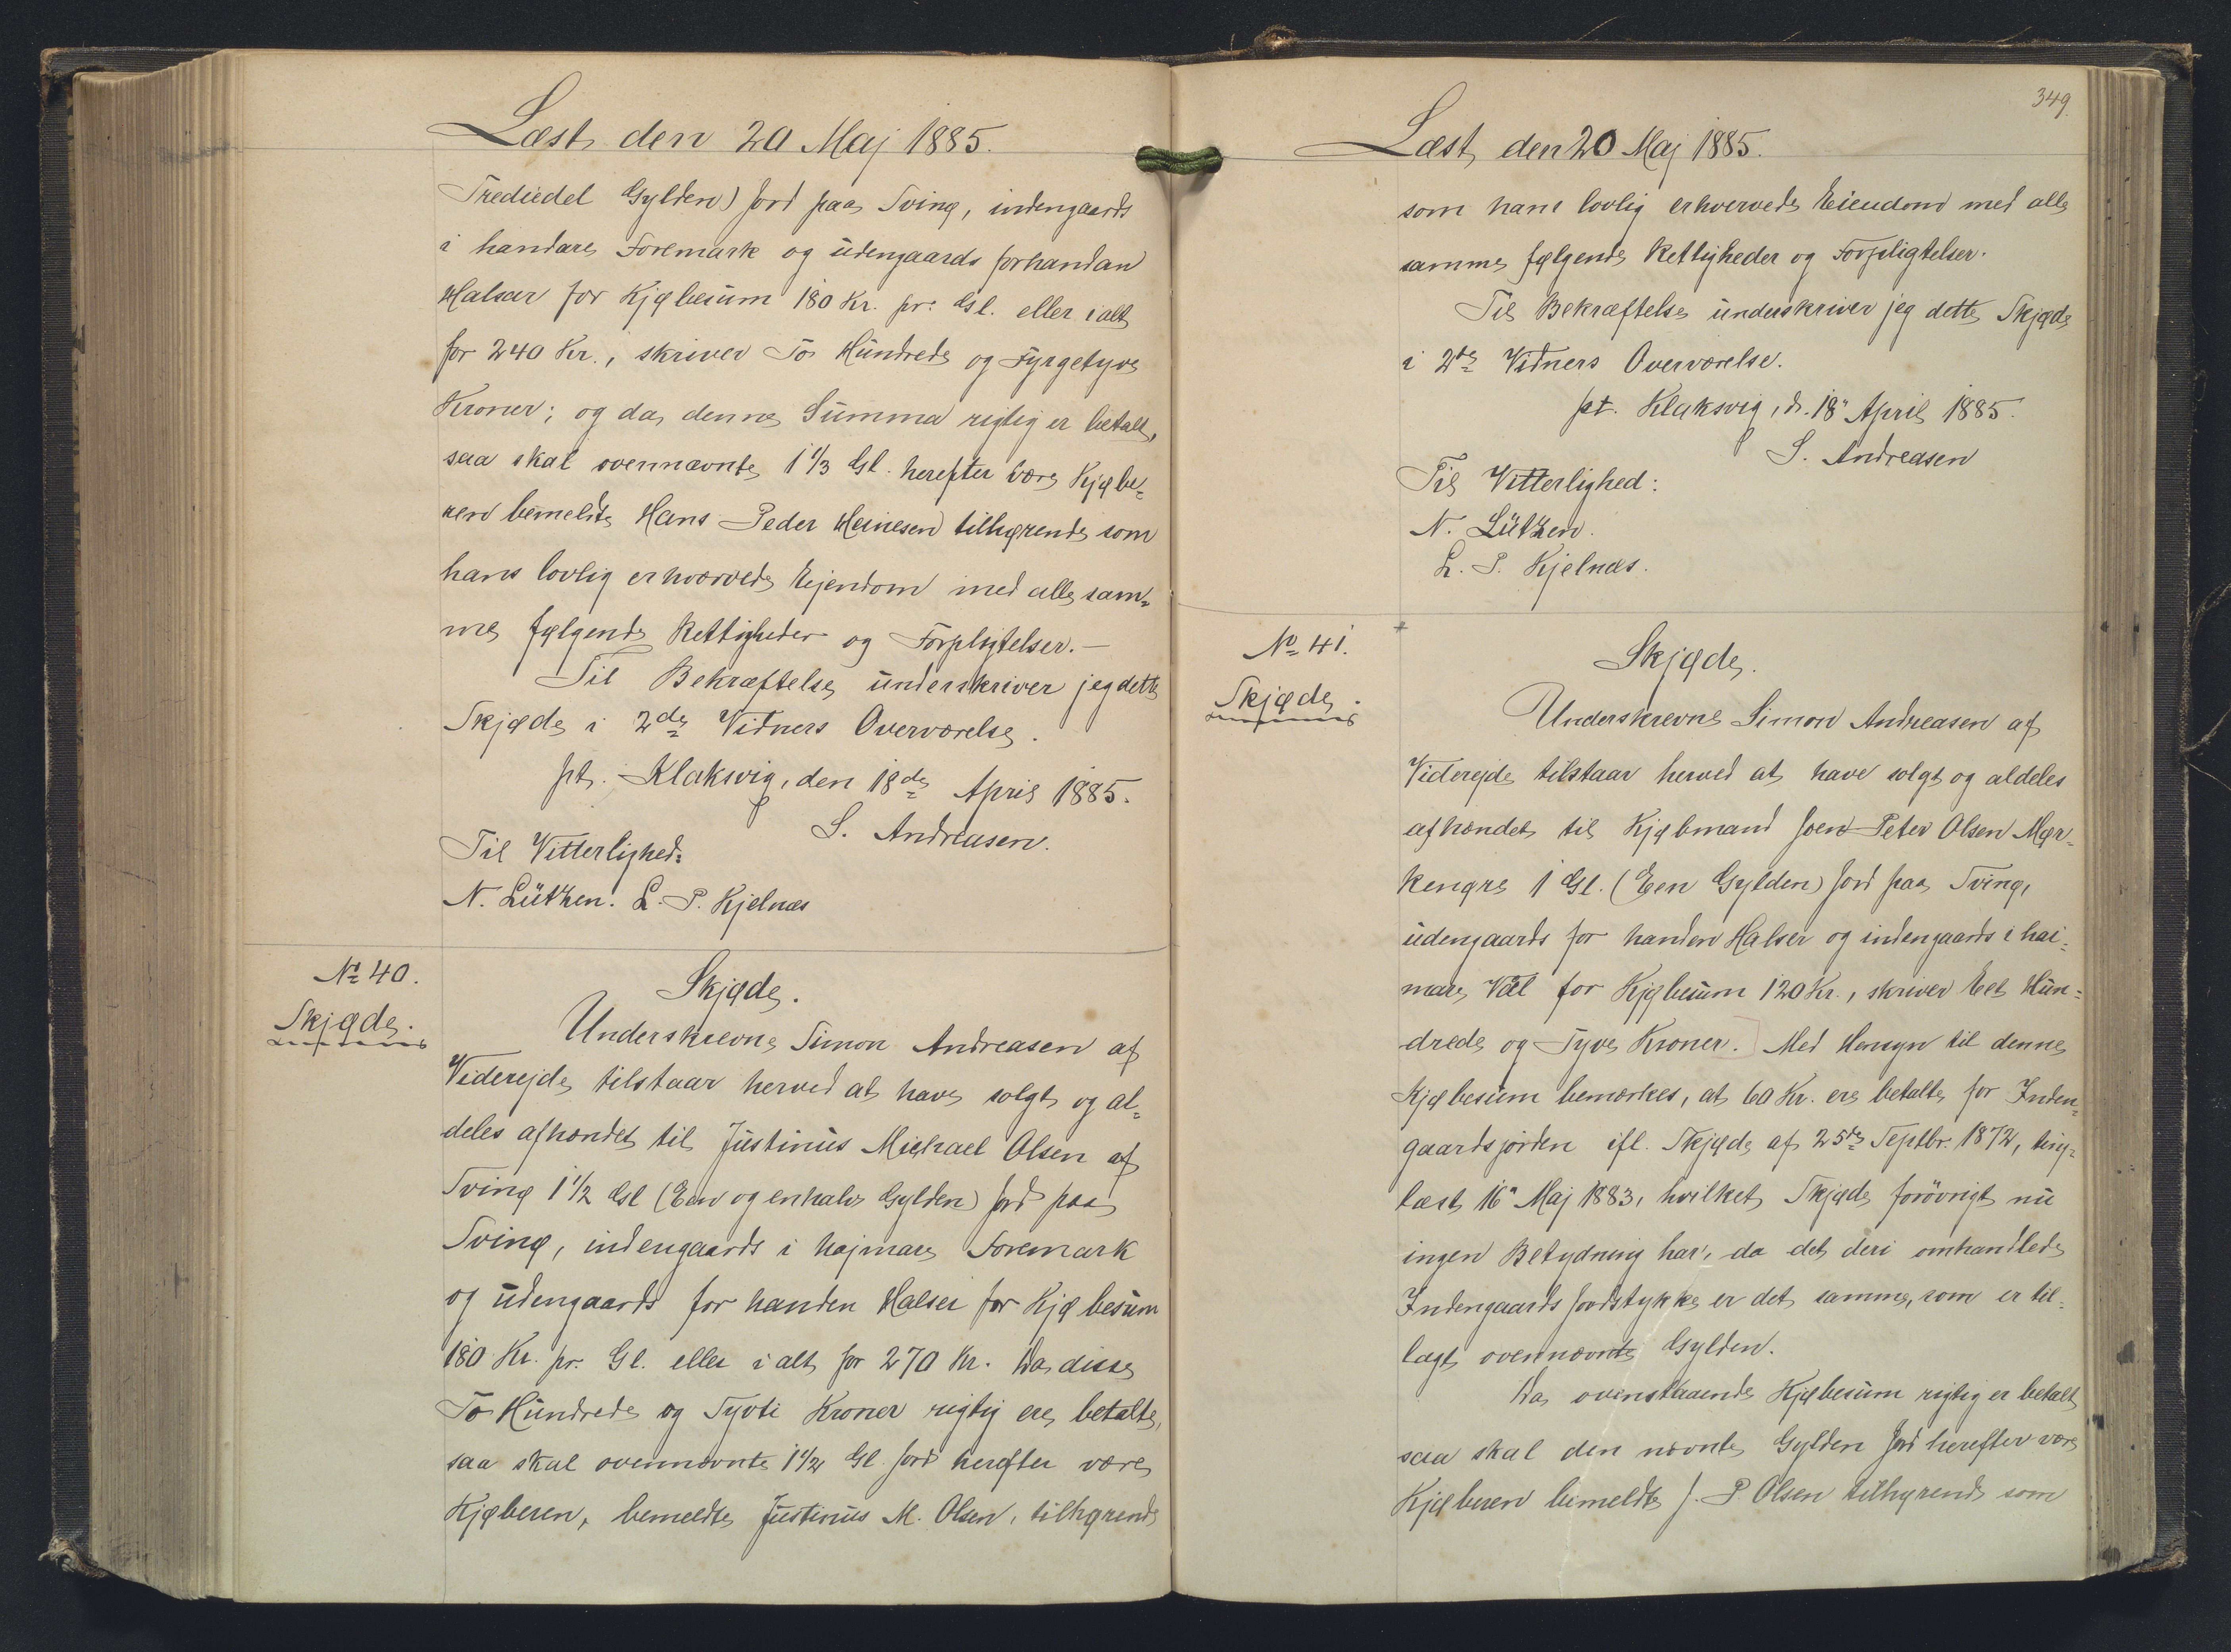 Læst den 20 Maj 1885.
Trediedel Gylden) Jord paa Tvinø, indengaards
i handare Foremark og udengaards forhandan
Halsar for Kjøbesum 180 Kr. pr. Gl. eller ialt
for 240 Kr., skriver To Hundrede og Fyrgetyve
Kroner; og da denne Summa rigtig er betalt,
saa skal ovennævnte 1 1/3 Gl. herefter være Kjøbe-
ren bemeldte Hans Peder Heinesen tilhørende som
hans lovlig erhvervede Ejendom med alle sam-
me følgende Rettigheder og Forpligtelser.—
Til Bekræftelse underskriver jeg dette
Skjøde i 2de Vidners Overværelse.
pt. Klaksvig, den 18de April 1885.
S. Andreasen.
Til Vitterlighed:
N. Lützen. L. P. Kjelnæs
No 40.
Skjøde.
Skjøde.
Underskrevne Simon Andreasen af
Viderejde tilstaar herved at have solgt og al-
deles afhændet til Justinus Michael Olsen af
Tvinø 1 1/2 Gl (Een og en halv Gylden) Jord paa
Tvinø, indengaards i hajmare Foremark
og udengaards for handen Halser for Kjøbesum
180 Kr. pr. Gl. eller ialt for 270 Kr. Da disse
To Hundrede og Syvti Kroner rigtig ere betalte,
saa skal ovennævnte 1 1/2 Gl. Jord herefter være
Kjøberen, bemeldte Justinus M. Olsen, tilhørende
349
Læst den 20 Maj 1885.
som hans lovlig erhvervede Eiendom med alle
samme følgende Rettigheder og Forpligtelser.
Til Bekræftelse underskriver jeg dette Skjøde
i 2de Vidners Overværelse.
pt. Klaksvig, d. 18" April 1885.
S. Andreasen
Til Vitterlighed:
N. Lützen.
L. P. Kjelnæs.
No 41.
Skjøde.
Skjøde.
Underskrevne Simon Andreasen af
Viderejde tilstaar herved at have solgt og aldeles
afhændet til Kjøbmand Joen Peter Olsen Mør-
kengre 1 Gl. (Een Gylden) Jord paa Tvinø,
udengaards for handen Halser og indengaards i hai-
mare Vál for Kjøbesum 120 Kr., skriver Eet Hun-
drede og Tyve Kroner. Med Hensyn til denne
Kjøbesum bemærkes, at 60 Kr. ere betalte for Inden-
gaardsjorden ifl. Skjøde af 25de Septbr. 1872, ting-
læst 16" Maj 1883, hvilket Skjøde forövrigt nu
ingen Betydning har, da det deri omhandlede
Indengaards Jordstykke er det samme, som er til-
lagt ovennævnte Gylden.
Da ovenstaaende Kjøbesum rigtig er betalt
saa skal den nævnte Gylden Jord herefter være
Kjøberen bemeldte J. P. Olsen tilhørende som